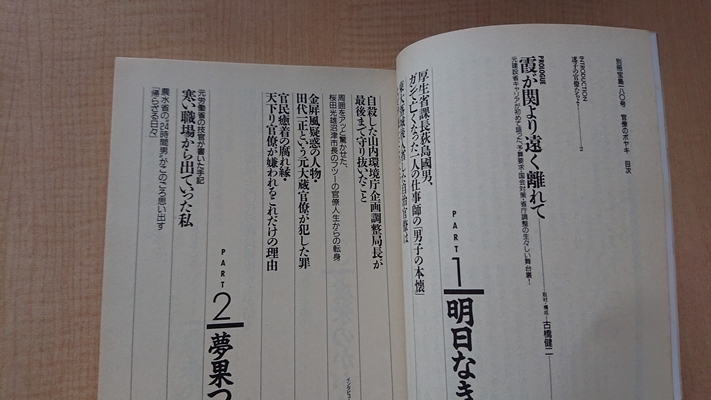 別冊宝島一八〇号 官僚のボヤキ 目次
INTRODUCTION
迷子の官僚たちよ!
2
PROLOGUE
霞が関より遠く離れて
元建設省キャリアが初めて語った、予算要求・国会対策・省庁調整の生々しい舞台裏!
取材・構成
古橋健二
PART
1
明日なき
厚生省課長荻島國男、
ガンで亡くなった一人の仕事師の「男子の本懐」
自殺した山内環境庁企画調整局長が
最後まで守り抜いたこと
周囲をアッと驚かせた、
桜田光雄沼津市長のフツーの官僚人生からの転身
金屏風疑惑の人物・
田代一正という元大蔵官僚が犯した罪
官民癒着の腐れ縁・
天下り官僚が嫌われるこれだけの理由
インタビュ
PART
2
夢果つ
元労働省の技官が書いた手記
寒い職場から出ていった私
農水省の"24時間男"がこのごろ思い出す
「帰らざる日々」